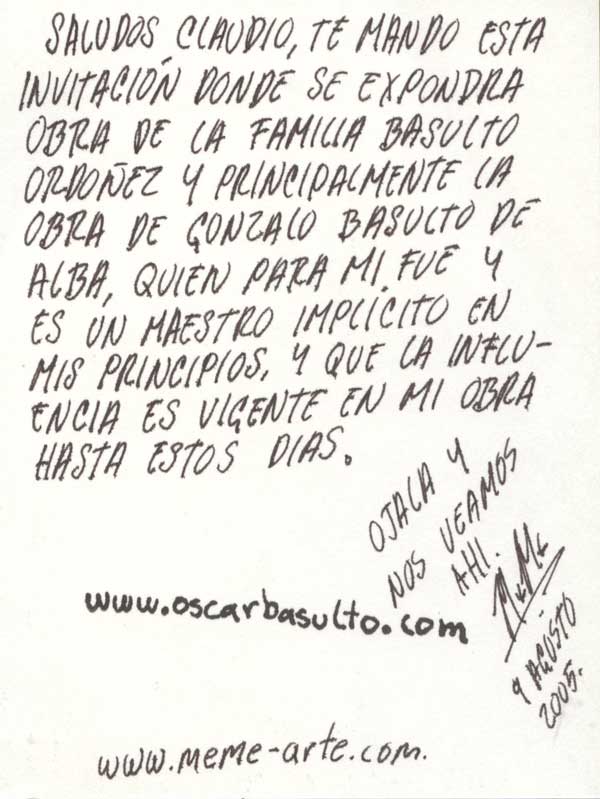 SALUDOS CLAUDIO, TE MANDO ESTA
INVITACIÓN DONDE SE EXPONDRA
OBRA DE LA FAMILIA BASULTO
ORDOÑEZ Y PRINCIPALMENTE LA
OBRA DE GONZALO BASULTO DE
ALBA, QUIEN PARA MI FUÉ Y
ES UN MAESTRO IMPLÍCITO EN
MIS PRINCIPIOS, Y QUE LA INFLU-
ENCIA ES VIGENTE EN MI OBRA
HASTA ESTOS DIAS.
OJALA Y
NOS VEAMOS
AHI.
MeMe
9 AGOSTO
2005.
www.oscarbasulto.com
www.meme-arte.com.